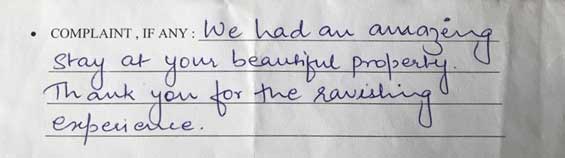 • COMPLAINT, IF ANY : We had an amazing
stay at your beautiful property.
Thank you for the ravishing
experience.